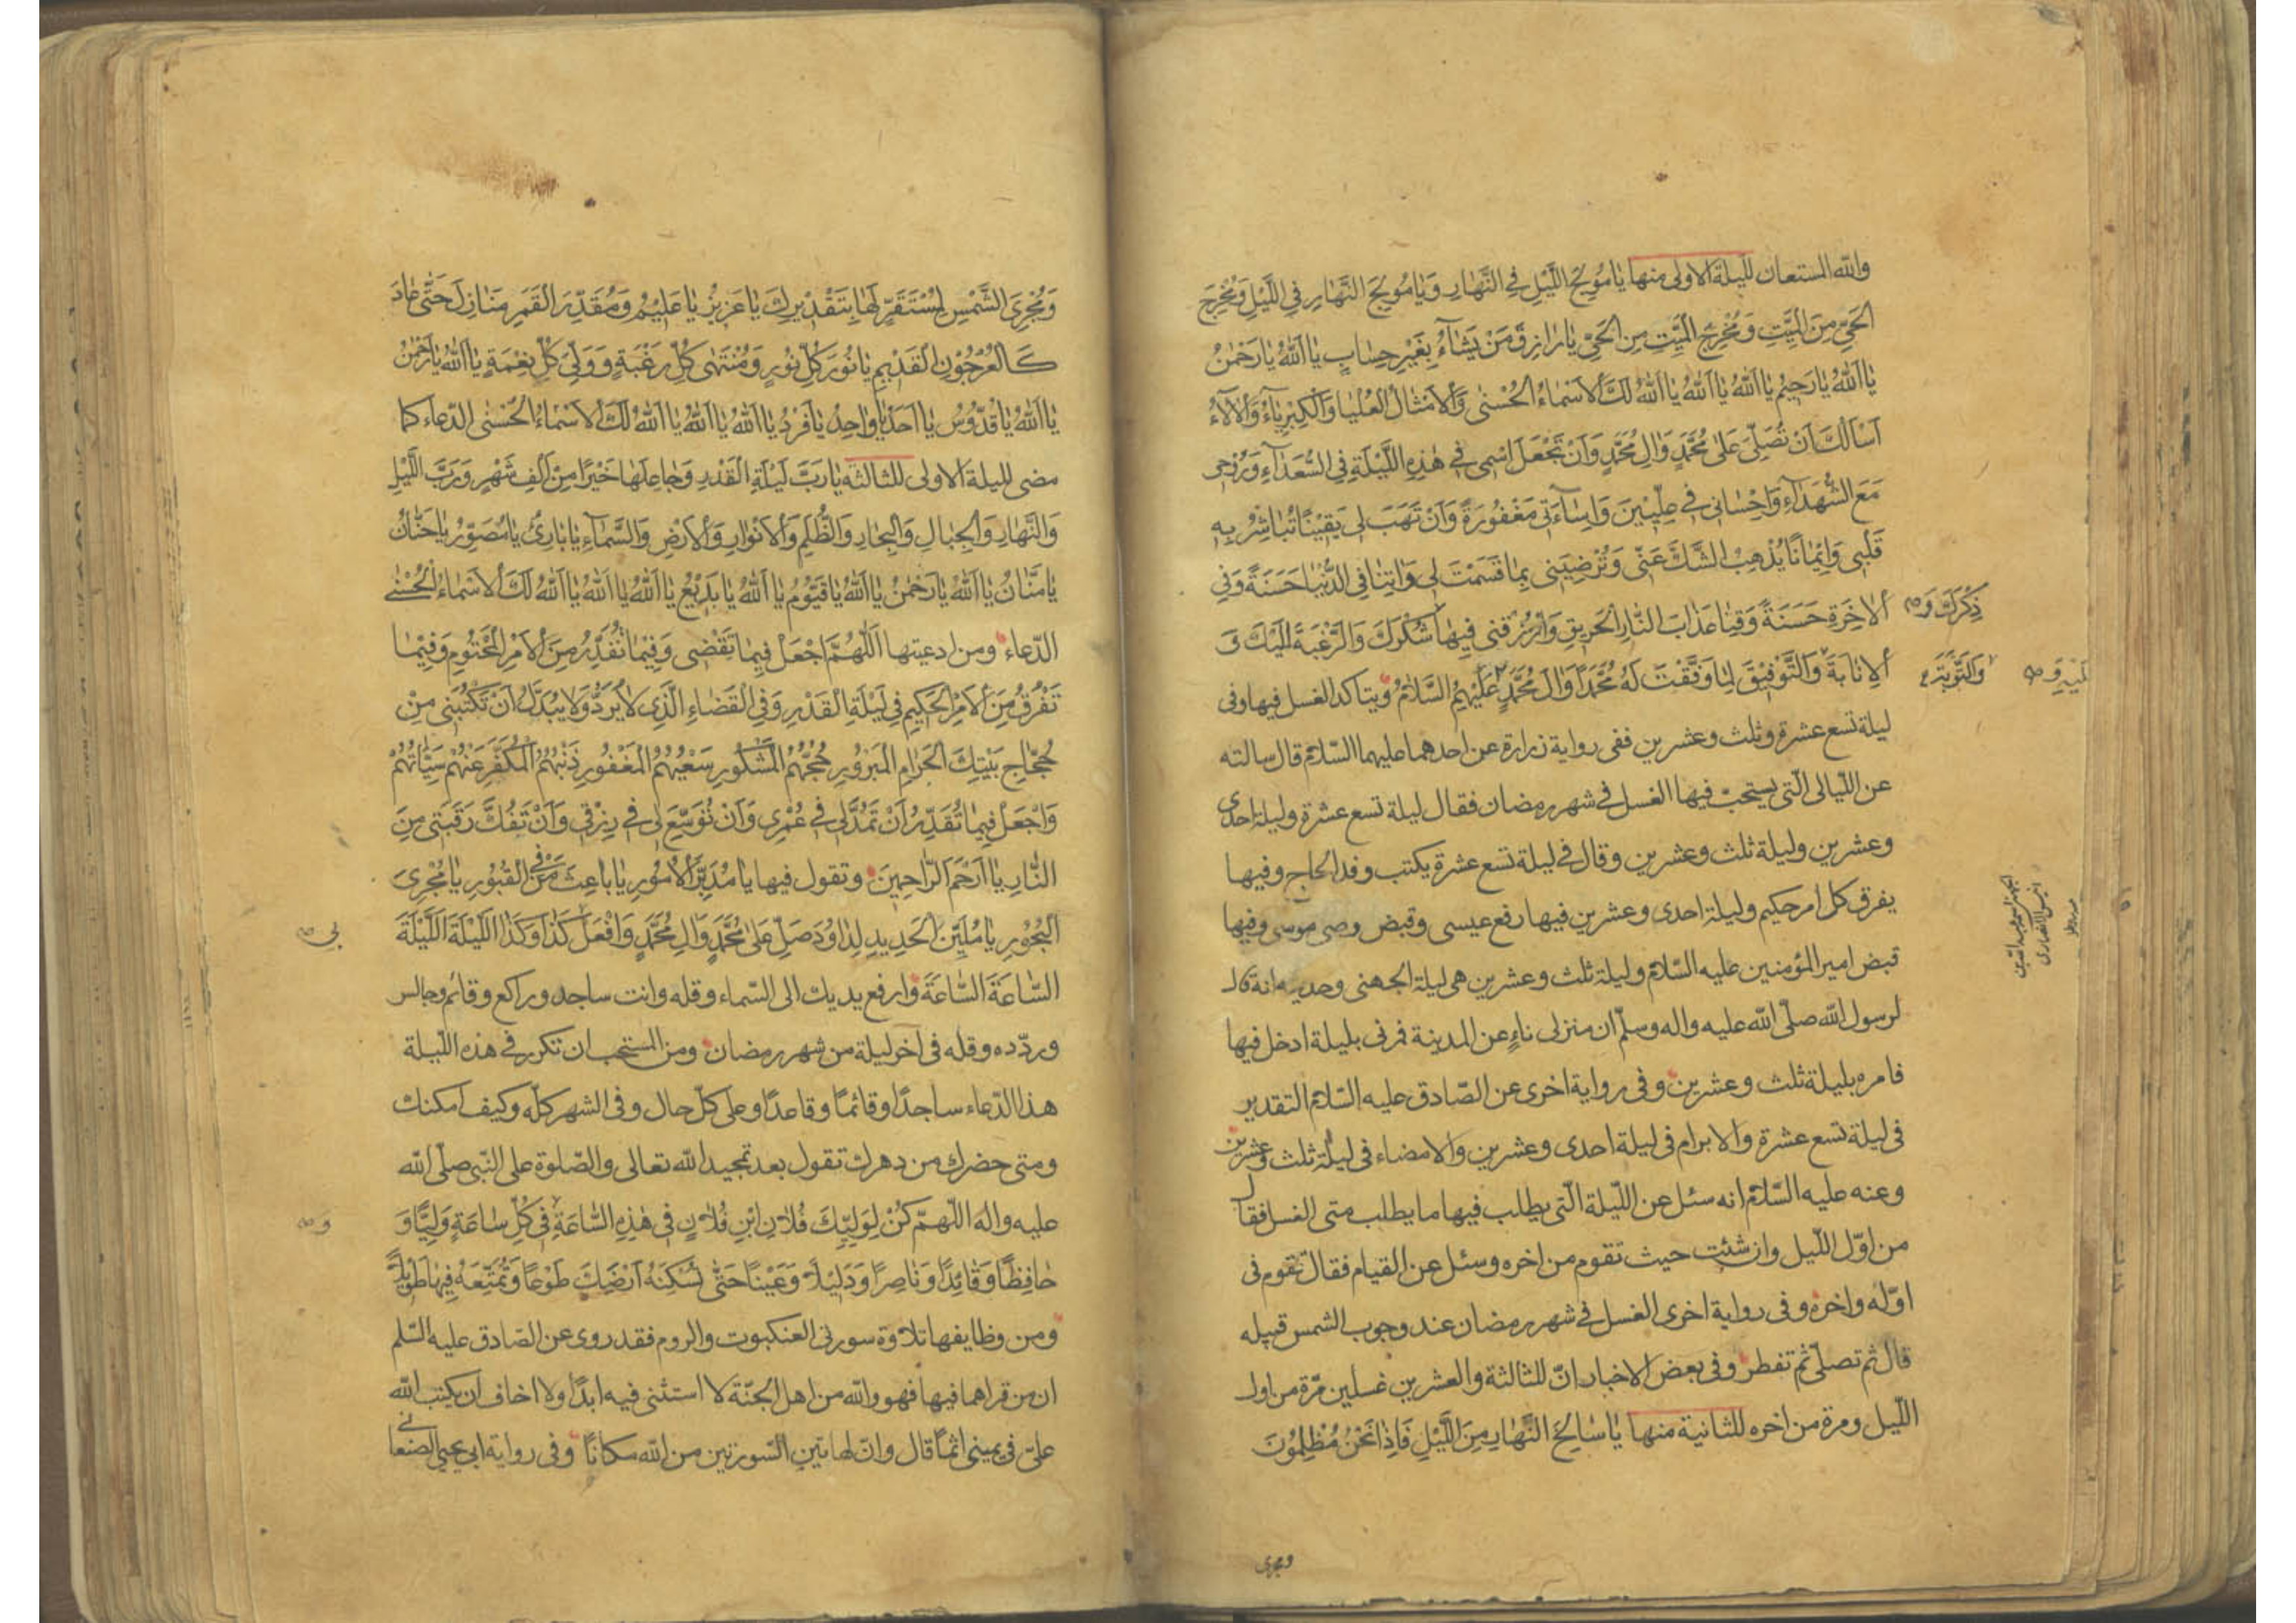 والله المستعان لليلة الاولى منها يَا مُولِجَ اللَّيْلِ فِي النَّهَارِ وَيَا مُولِجَ النَّهَارِ فِي اللَّيْلِ وَمُخْرِجَ
الْحَيِّ مِنَ الْمَيِّتِ وَمُخْرِجَ الْمَيِّتِ مِنَ الْحَيِّ يَا رَازِقَ مَنْ يَشَاءُ بِغَيْرِ حِسَابٍ يَا اَللهُ يَا رَحْمٰنُ
يَا اَللهُ يَا رَحِيمُ يَا اَللهُ يَا اَللهُ يَا اَللهُ لَكَ الْاَسْمَاءُ الْحُسْنٰى وَالْاَمْثَالُ الْعُلْيَا وَالْكِبْرِيَاءُ وَالْآلَاءُ
اَسْاَلُكَ اَنْ تُصَلِّيَ عَلٰى مُحَمَّدٍ وَالِ مُحَمَّدٍ وَاَنْ تَجْعَلَ اسْمِى فِي هٰذِهِ اللَّيْلَةِ فِي السُّعَدَاءِ وَرُوحِى
مَعَ الشُّهَدَاءِ وَاِحْسَانِى فِي عِلِّيِّينَ وَاِسَاءَتِى مَغْفُورَةً وَاَنْ تَهَبَ لِى يَقِينًا تُبَاشِرُ بِهِ
قَلْبِى وَاِيمَانًا يُذْهِبُ الشَّكَّ عَنِّى وَتُرْضِيَنِى بِمَا قَسَمْتَ لِى وَاٰتِنَا فِي الدُّنْيَا حَسَنَةً وَفِى
الْاٰخِرَةِ حَسَنَةً وَقِنَا عَذَابَ النَّارِ الْحَرِيقِ وَارْزُقْنِى فِيهَا شُكْرَكَ وَالرَّغْبَةَ اِلَيْكَ وَ
ذِكْرَكَ وَ صح
الْاِنَابَةَ وَالتَّوْفِيقَ لِمَا وَفَّقْتَ لَهُ مُحَمَّدًا وَالَ مُحَمَّدٍ عَلَيْهِمُ السَّلَامُ ويتاكد الغسل فيها وفى
وَالتَّوْبَةَ
ليلة تسع عشرة وثلث وعشرين ففى رواية زرارة عن احدهما عليهما السّلام قال سالته
عن اللّيالى الّتى يستحبّ فيها الغسل فى شهر رمضان فقال ليلة تسع عشرة وليلة احدى
وعشرين وليلة ثلث وعشرين وقال فى ليلة تسع عشرة يكتب وفد الحاج وفيها
يفرق كل امر حكيم وليلة احدى وعشرين فيها رفع عيسى وقبض وصى موسى وفيها
قبض امير المؤمنين عليه السّلام وليلة ثلث وعشرين هى ليلة الجهنى وحديثه انه قال
لرسول الله صلّى الله عليه واله وسلّم ان منزلى ناءٍ عن المدينة فمرنى بليلة ادخل فيها
فامره بليلة ثلث وعشرين وفى رواية اخرى عن الصّادق عليه السّلام التقدير
فى ليلة تسع عشرة والابرام فى ليلة احدى وعشرين والامضاء فى ليلة ثلث وعشرين
وعنه عليه السّلام انه سئل عن اللّيلة الّتى يطلب فيها ما يطلب متى الغسل فقال
من اوّل اللّيل وان شئت حيث تقوم من اخره وسئل عن القيام فقال تقوم فى
اوّله واخره وفى رواية اخرى الغسل فى شهر رمضان عند وجوب الشمس قبيله
قال ثم تصلّى ثم تفطر وفى بعض الاخبار انّ للثالثة والعشرين غسلين مرّة من اول
اللّيل ومرة من اخره للثانية منها يَا سَالِخَ النَّهَارِ مِنَ اللَّيْلِ فَاِذَا نَحْنُ مُظْلِمُونَ
ومجرى
وَمُجْرِىَ الشَّمْسِ لِمُسْتَقَرٍّ لَهَا بِتَقْدِيرِكَ يَا عَزِيزُ يَا عَلِيمُ وَمُقَدِّرَ الْقَمَرِ مَنَازِلَ حَتّٰى عَادَ
كَالْعُرْجُونِ الْقَدِيمِ يَا نُورَ كُلِّ نُورٍ وَمُنْتَهٰى كُلِّ رَغْبَةٍ وَوَلِىَّ كُلِّ نِعْمَةٍ يَا اَللهُ يَا رَحْمٰنُ
يَا اَللهُ يَا قُدُّوسُ يَا اَحَدُ يَا وَاحِدُ يَا فَرْدُ يَا اَللهُ يَا اَللهُ يَا اَللهُ لَكَ الْاَسْمَاءُ الْحُسْنٰى الدّعاء كما
مضى لليلة الاولى للثالثه يَا رَبَّ لَيْلَةِ الْقَدْرِ وَجَاعِلَهَا خَيْرًا مِنْ اَلْفِ شَهْرٍ وَرَبَّ اللَّيْلِ
وَالنَّهَارِ وَالْجِبَالِ وَالْبِحَارِ وَالظُّلَمِ وَالْاَنْوَارِ وَالْاَرْضِ وَالسَّمَاءِ يَا بَارِئُ يَا مُصَوِّرُ يَا حَنَّانُ
يَا مَنَّانُ يَا اَللهُ يَا رَحْمٰنُ يَا اَللهُ يَا قَيُّومُ يَا اَللهُ يَا بَدِيعُ يَا اَللهُ يَا اَللهُ يَا اَللهُ لَكَ الْاَسْمَاءُ الْحُسْنٰى
الدّعاء ومن ادعيتها اَللّٰهُمَّ اجْعَلْ فِيمَا تَقْضِى وَفِيمَا تُقَدِّرُ مِنَ الْاَمْرِ الْمَحْتُومِ وَفِيمَا
تَفْرُقُ مِنَ الْاَمْرِ الْحَكِيمِ فِي لَيْلَةِ الْقَدْرِ وَفِى الْقَضَاءِ الَّذِى لَا يُرَدُّ وَلَا يُبَدَّلُ اَنْ تَكْتُبَنِى مِنْ
حُجَّاجِ بَيْتِكَ الْحَرَامِ الْمَبْرُورِ حَجُّهُمُ الْمَشْكُورِ سَعْيُهُمُ الْمَغْفُورِ ذَنْبُهُمُ الْمُكَفَّرِ عَنْهُمْ سَيِّئَاتُهُمْ
وَاجْعَلْ فِيمَا تُقَدِّرُ اَنْ تَمُدَّ لِى فِى عُمْرِى وَاَنْ تُوَسِّعَ لِى فِى رِزْقِى وَاَنْ تَفُكَّ رَقَبَتِى مِنَ
النَّارِ يَا اَرْحَمَ الرَّاحِمِينَ وتقول فيها يَا مُدَبِّرَ الْاُمُورِ يَا بَاعِثَ مَنْ فِى الْقُبُورِ يَا مُجْرِىَ
الْبُحُورِ يَا مُلَيِّنَ الْحَدِيدِ لِدَاوُدَ صَلِّ عَلٰى مُحَمَّدٍ وَالِ مُحَمَّدٍ وَافْعَلْ كَذَا وَكَذَا اللَّيْلَةَ اللَّيْلَةَ
بى صح
السَّاعَةَ السَّاعَةَ وارفع يديك الى السّماء وقله وانت ساجد وراكع وقائم وجالس
وردّده وقله فى اخر ليلة من شهر رمضان ومن المستحب ان تكرر فى هذه اللّيلة
هذا الدّعاء ساجدًا وقائمًا وقاعدًا وعلى كلّ حال وفى الشهر كلّه وكيف امكنك
ومتى حضرك من دهرك تقول بعد تمجيد الله تعالى والصّلوة على النّبى صلّى الله
عليه واله اللّهمّ كُنْ لِوَلِيِّكَ فُلَانِ ابْنِ فُلَانٍ فِى هٰذِهِ السَّاعَةِ فِى كُلِّ سَاعَةٍ وَلِيًّا وَ
وَ صح
حَافِظًا وَقَائِدًا وَنَاصِرًا وَدَلِيلًا وَعَيْنًا حَتّٰى تُسْكِنَهُ اَرْضَكَ طَوْعًا وَتُمَتِّعَهُ فِيهَا طَوِيلًا
ومن وظايفها تلاوة سورتى العنكبوت والروم فقد روى عن الصّادق عليه السّلم
ان من قراهما فيها فهو والله من اهل الجنّة لا استثنى فيه ابدًا ولا اخاف ان يكتب الله
علىّ فى يمينى اثمًا قال وانّ لهاتين السّورتين من الله مكانًا وفى رواية ابى يحيى الصنعانى